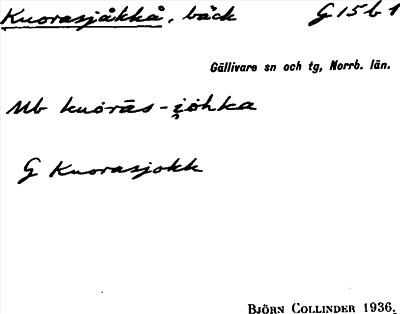 Kuorasjåkkå, bäck G 15 b 1
Gällivare sn och tg, Norrb. län.
Mb kuoräs-i̯ǫ̈hka
G Kuorasjokk
BJÖRN COLLINDER 1936.